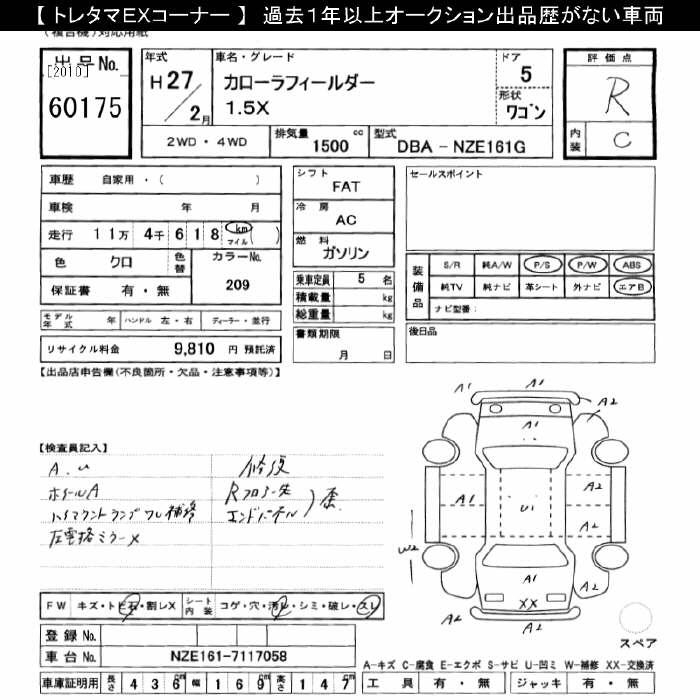 【トレタマEXコーナー】 過去1年以上オークション出品歴がない車両
(複合機)対応用紙
出品No.
[2010]
60175
年式
H27/2月
車名・グレード
カローラフィールダー
1.5X
ドア
5
形状
ワゴン
評価点
R
内装
C
2WD・4WD
排気量
1500 cc
型式
DBA - NZE161G
車歴 自家用・( )
車検 年 月
走行 11万 4千 6 1 8 km マイル ( )
色 クロ
色替
カラーNo.
209
保証書 有・無
モデル年式 年
ハンドル 左・右
ディーラー・並行
リサイクル料金 9,810 円 預託済
シフト
FAT
冷房
AC
燃料
ガソリン
乗車定員 5 名
積載量 kg
総重量 kg
書類期限
月 日
セールスポイント
装備品
S/R 純A/W P/S P/W ABS
純TV 純ナビ 革シート 外ナビ エアB
ナビ型番:
後日品
【出品店申告欄(不良箇所・欠品・注意事項等)】
【検査員記入】
A.U
ホイールA
ハイマウントランプワレ補修
左電格ミラー×
修復
Rフロアー先
エンドパネル
歪
A1
A1
A2
A2
A1
U1
A2
A2
W2
A2
A1
XX
A2
A2
スペア
FW キズ・トビ石・割レX
シート内装 コゲ・穴・汚レ・シミ・破レ・スレ
登録No.
車台No. NZE161-7117058
車庫証明用 長さ 436cm 幅 169cm 高さ 147cm
A-キズ C-腐食 E-エクボ S-サビ U-凹ミ W-補修 XX-交換済
工具 有・無 ジャッキ 有・無